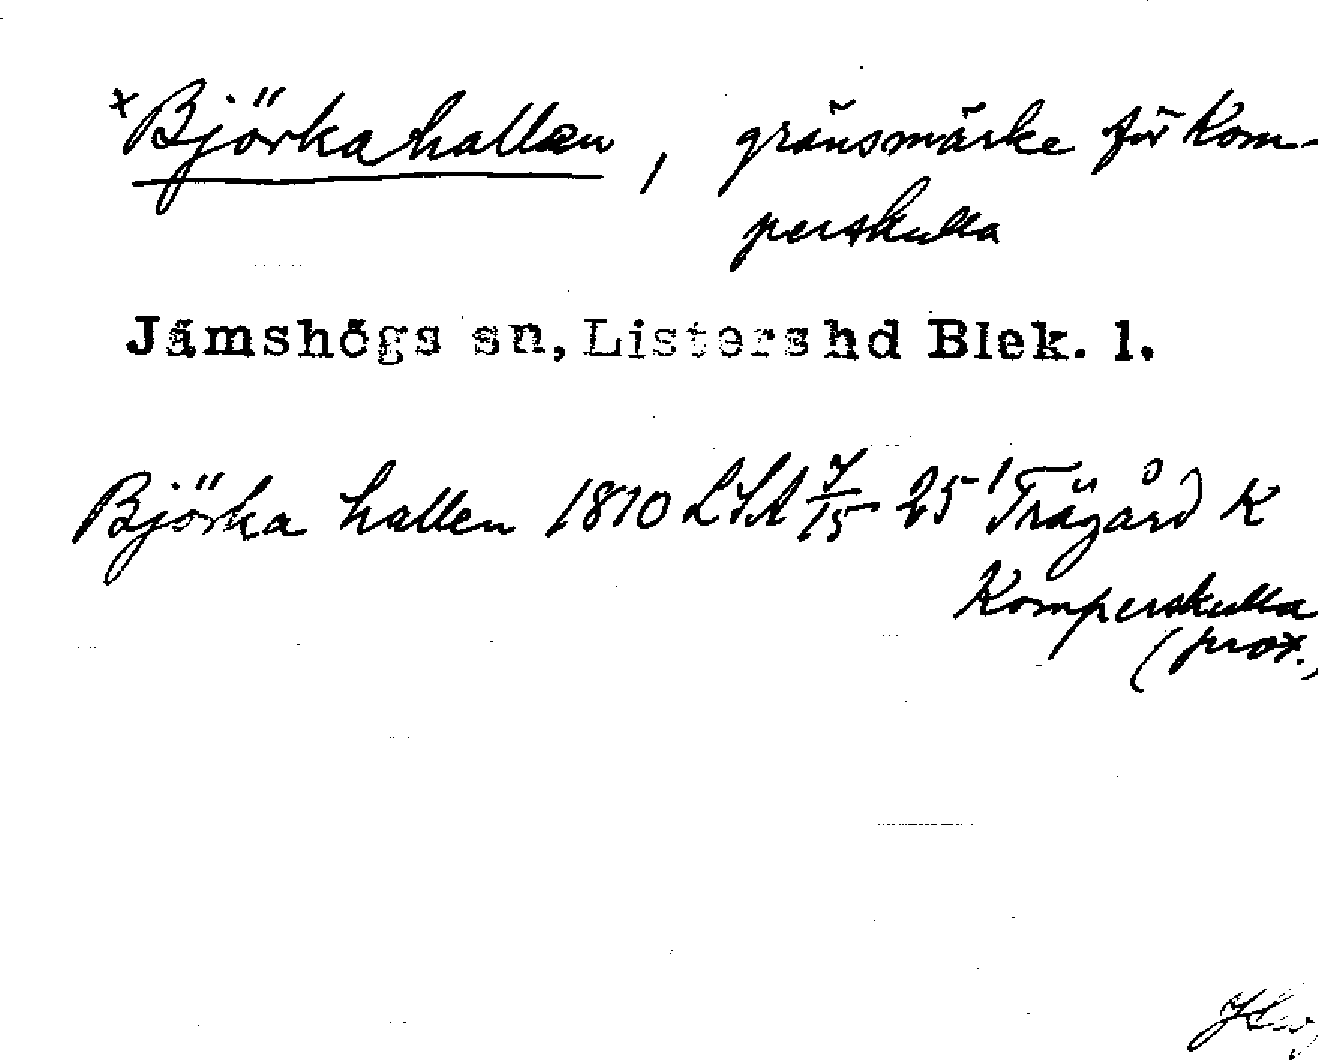 ×Björkahallen, gränsmärke för Kom-
perskulla
Jämshögs sn, Listers hd Blek. l.
Björka hallen 1810 LSA 7/15 25 Trägård K
Komperskulla
(prox.)